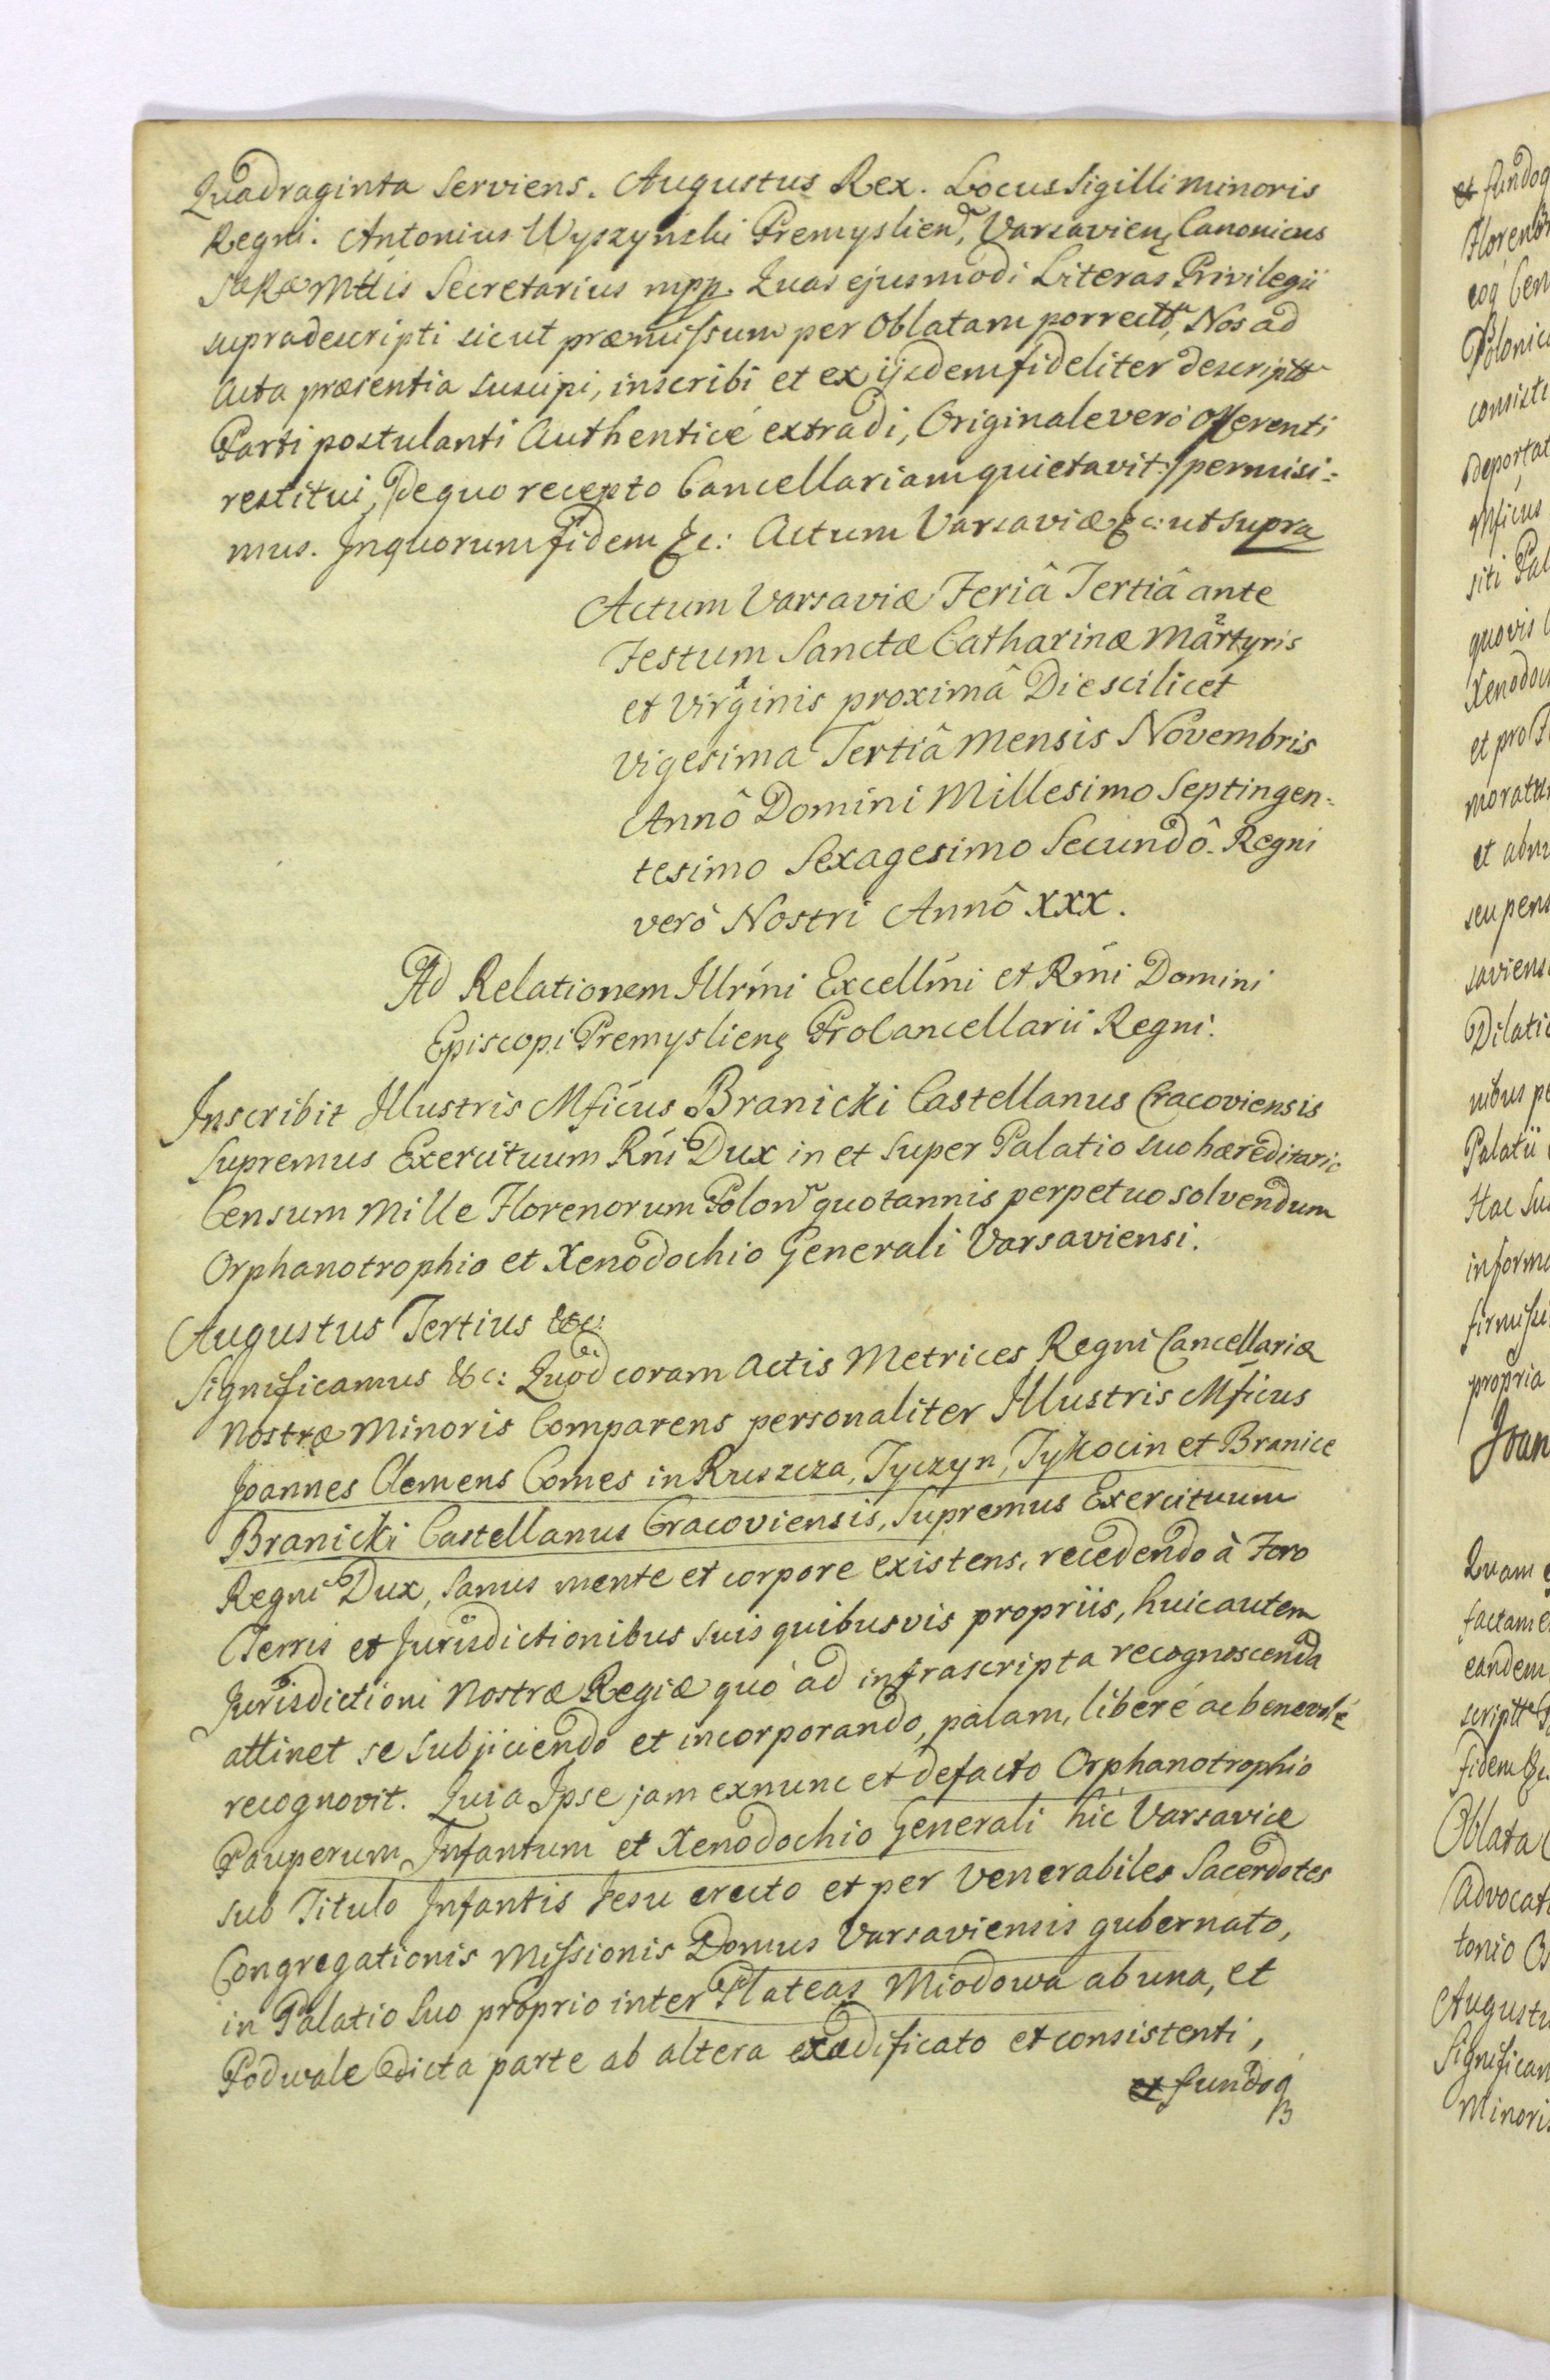 Quadraginta Serviens. Augustus Rex. Locus Sigilli minoris
Regni. Antonius Wyszynski Premyslien, Varsavien, Canonicus
SaRæ Mttis Secretarius mpp. Quas ejusmodi Literas Privilegii
supradescripti sicut præmissum per Oblatam porrectt, Nos ad
Acta præsentia suscipi, inscribi et ex ijsdem fideliter descriptt
Parti postulanti Authenticè extradi, Originale verò Offerenti
restitui, /: De quo recepto Cancellariam quietavit :/ permisi:
mus. In quorum fidem &c: Actum Varsaviæ &c: ut supra
Actum Varsaviæ Feriâ Tertiâ ante
Festum Sanctæ Catharinæ 2 Martyris
et 1 Virginis proximâ Die scilicet
Vigesima Tertiâ Mensis Novembris
Annô Domini Millesimo Septingen:
tesimo Sexagesimo Secundô. Regni
verò Nostri Annô XXX.
Ad Relationem Illrmi Excellmi et Rmi Domini
Episcopi Premyslieng ProCancellarii Regni.
Inscribit Illustris Mficus Branicki Castellanus Cracoviensis
Supremus Exercituum Rni Dux in et super Palatio suo hæreditario
Censum Mille Florenorum Polon quotannis perpetuo solvendum
Orphanotrophio et Xenodochio Generali Varsaviensi.
Augustus Tertius &c:
Significamus &c: Quod coram Actis Metrices Regni Cancellariæ
Nostræ Minoris Comparens personaliter Illustris Mficus
Joannes Clemens Comes in Ruszcza, Tyczyn, Tykocin et Branice
Branicki Castellanus Cracoviensis, Supremus Exercituum
Regni Dux, sanus mente et corpore existens, recedendo à Foro
Terris et Jurisdictionibus suis quibusvis propriis, huic autem
Jurisdictioni Nostræ Regiæ quò ad infrascripta recognoscenda
attinet se subjiciendo et incorporando, palam, liberè ac benevolè
recognovit. Quia Ipse jam exnunc et defacto Orphanotrophio
Pauperum Infantum et Xenodochio Generali hic Varsaviæ
sub Titulo Infantis Jesu erecto et per Venerabiles Sacerdotes
Congregationis Missionis Domus Varsaviensis gubernato,
in Palatio suo proprio inter Plateas Miodowa ab una, et
Podwale dicta parte ab altera exædificato et consistenti,
et fundoq
et fundoq
Polonic
consiste
deportat
Mficus
siti Pal
quovis
Xenodo
et pro
moratu
seu pens
saviens
Dilati
nibus pe
Palatii
Hac su
inform
propria
Joan
Quam
factam e
eandem
fidem &c
Oblata
Advocat
tonio
August
Significam
Minori